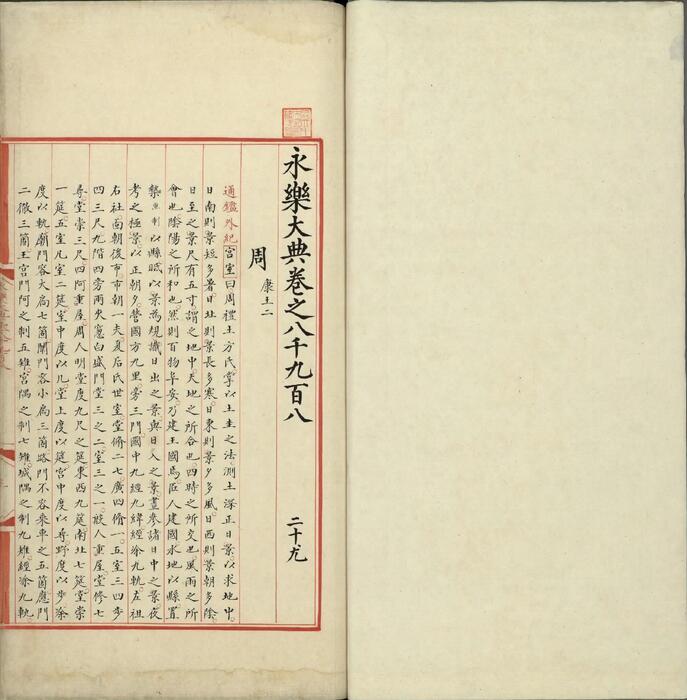 永樂大典卷之八千九百八 二十尤
周 康王二
通鑑外紀宮室曰周禮土方氏掌以土圭之法測土深正日景以求地中
日南則景短多暑日北則景長多寒日東則景夕多風日西則景朝多陰
日至之景尺有五寸謂之地中天地之所合也四時之所交也風雨之所
會也陰陽之所和也然則百物阜安乃建王國焉匠人建國水地以縣置
槷以縣眡以景為規識日出之景與日入之景晝參諸日中之景夜
考之極景以正朝夕營國方九里旁三門國中九經九緯經涂九軌左祖
右社面朝後市市朝一夫夏后氏世室堂脩二七廣四脩一五室三四步
四三尺九階四旁兩夾窻白盛門堂三之二室三之一殷人重屋堂修七
尋堂崇三尺四阿重屋周人明堂度九尺之筵東西九筵南北七筵堂崇
一筵五室凡室二筵室中度以几堂上度以筵宮中度以尋野度以步涂
度以軌廟門容大扃七箇闈門容小扃三箇路門不容乘車之五箇應門
二徹三箇王宮門阿之制五雉宮隅之制七雉城隅之制九雉經涂九軌